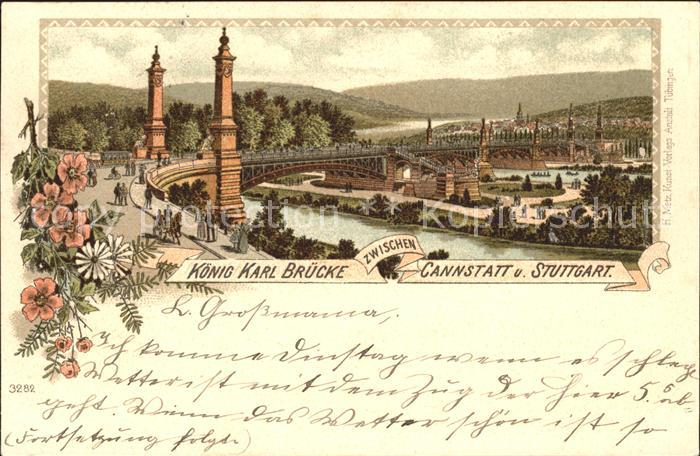 KÖNIG KARL BRÜCKE ZWISCHEN CANNSTATT u. STUTTGART.
H. Metz, Kunst-Verlags-Anstalt, Tübingen
3282
L. Großmama,
Ich komme Dinstag wenn es schlech
Wetter ist mit dem Zug der hier 5.6 ab-
geht. Wenn das Wetter schön ist so
(Fortsetzung folgt.)
Protection copyright